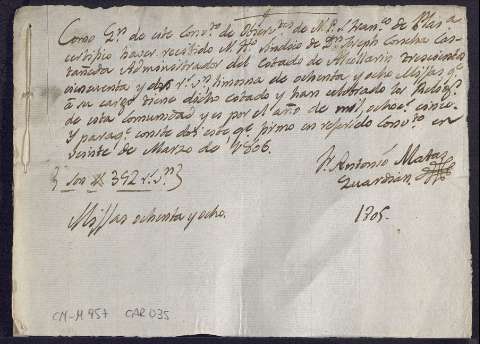 Como Gn. de este Convto. de Observtes. de N. P. Sn. Franco. de
certifico haver recibido Dn. Joseph Concha Cas-
tañeda Administrador del Estado de trescientos
cincuenta y dos rs. vn. limosna de ochenta y ocho Missas qe.
a su cargo tiene dicho estado y han celebrado los Religs.
de esta comunidad y es por el año de mil ochocs. cinco
Y paraqe. conste doi este qe. firmo en referido Convto. en
veinte de Marzo de 1806.
{ Son # 352 rs. vn. }
Fr. Antonio Mata
Guardian
Missas ochenta y ocho.
1805.
CM-M 957 CAR 035